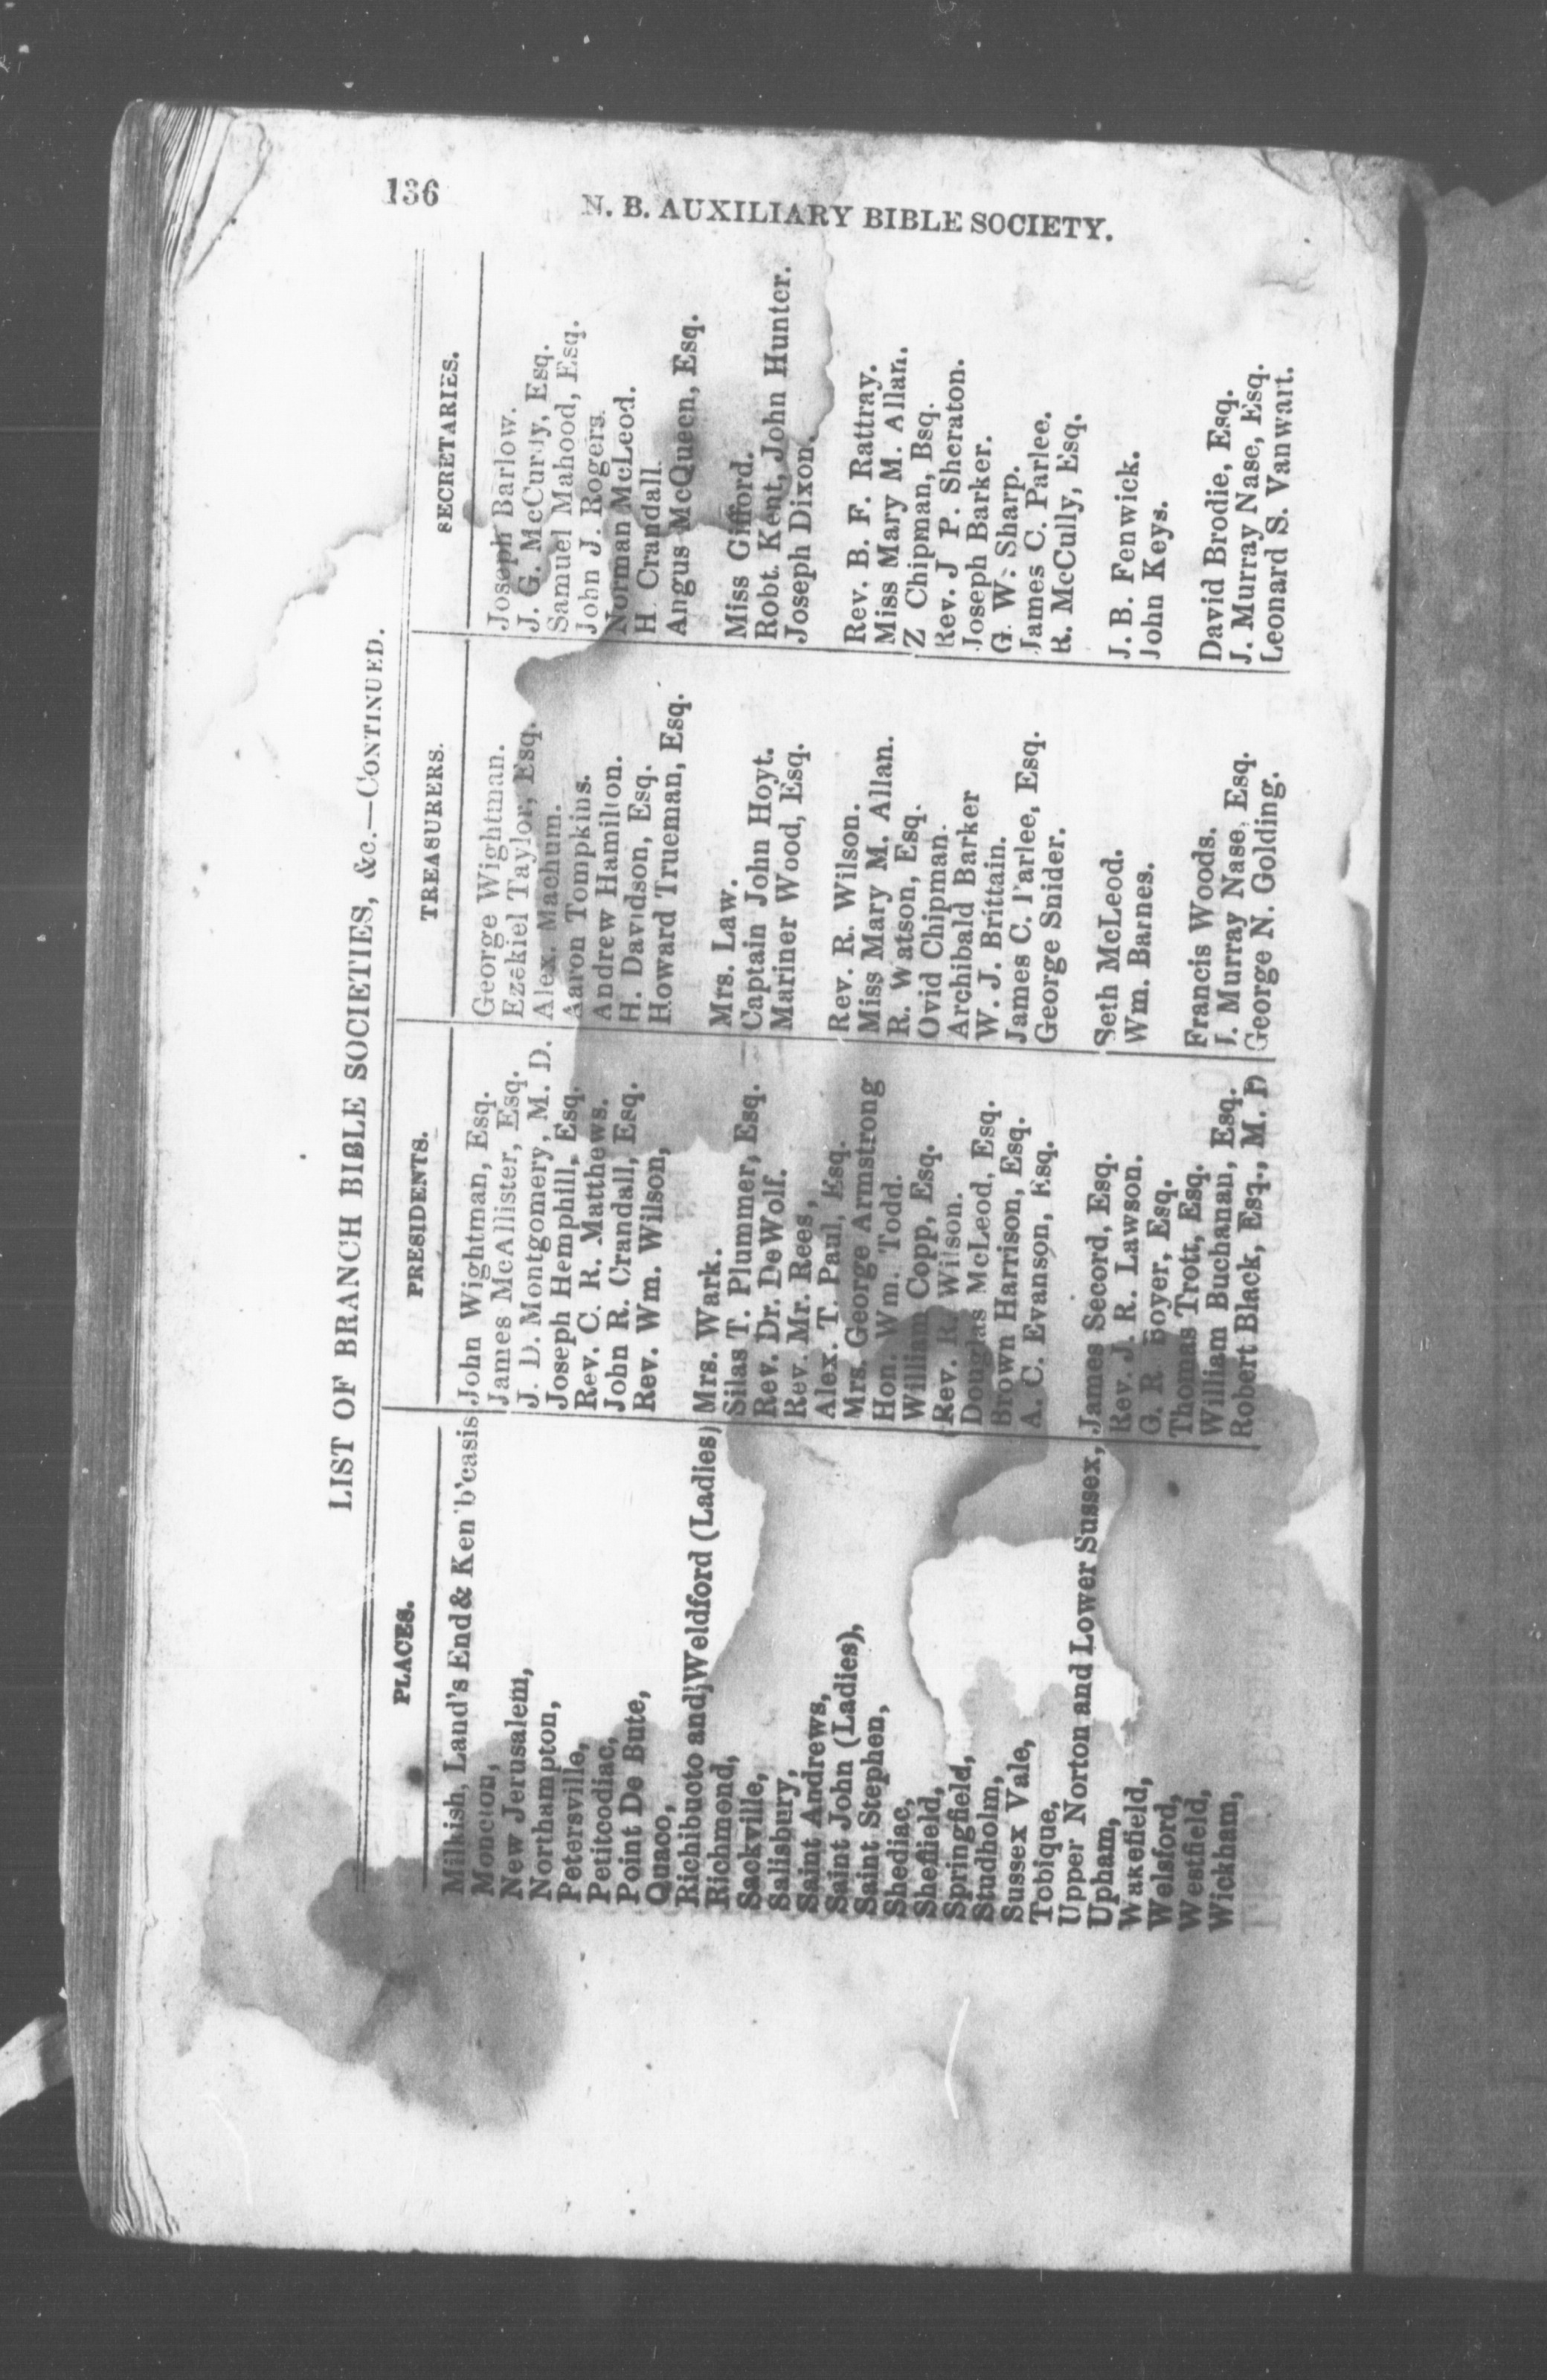 136
N. B. AUXILIARY BIBLE SOCIETY.
LIST OF BRANCH BIBLE SOCIETIES, &c.—CONTINUED.
PLACES. PRESIDENTS. TREASURERS. SECRETARIES.
Milkish, Land's End & Ken'b'casis John Wightman, Esq. George Wightman. Joseph Barlow.
Moncton, James McAllister, Esq. Ezekiel Taylor, Esq. J. G. McCurdy, Esq.
New Jerusalem, J. D. Montgomery, M. D. Alex. Machum. Samuel Mahood, Esq.
Northampton, Joseph Hemphill, Esq. Aaron Tompkins. John J. Rogers.
Petersville, Rev. C. R. Matthews. Andrew Hamilton. Norman McLeod.
Petitcodiac, John R. Crandall, Esq. H. Davidson, Esq. H. Crandall.
Point De Bute, Rev. Wm. Wilson, Howard Trueman, Esq. Angus McQueen, Esq.
Quaco,
Richibucto and Weldford (Ladies) Mrs. Wark. Mrs. Law. Miss Gifford.
Richmond, Silas T. Plummer, Esq. Captain John Hoyt. Robt. Kent, John Hunter.
Sackville, Rev. Dr. DeWolf. Mariner Wood, Esq. Joseph Dixon.
Salisbury, Rev. Mr. Rees,
Saint Andrews, Alex. T. Paul, Esq. Rev. R. Wilson. Rev. B. F. Rattray.
Saint John (Ladies), Mrs. George Armstrong Miss Mary M. Allan. Miss Mary M. Allan.
Saint Stephen, Hon. Wm. Todd. R. Watson, Esq. Z Chipman, Bsq.
Shediac, William Copp, Esq. Ovid Chipman. Rev. J P. Sheraton.
Sheffield, Rev. R. Wilson. Archibald Barker Joseph Barker.
Springfield, Douglas McLeod, Esq. W. J. Brittain. G. W. Sharp.
Studholm, Brown Harrison, Esq. James C. Parlee, Esq. James C. Parlee.
Sussex Vale, A. C. Evanson, Esq. George Snider. R. McCully, Esq.
Tobique,
Upper Norton and Lower Sussex, James Secord, Esq. Seth McLeod. J. B. Fenwick.
Upham, Rev. J. R. Lawson. Wm. Barnes. John Keys.
Wakefield, G. R Boyer, Esq.
Welsford, Thomas Trott, Esq. Francis Woods. David Brodie, Esq.
Westfield, William Buchanan, Esq. J. Murray Nase, Esq. J. Murray Nase, Esq.
Wickham, Robert Black, Esq., M. D George N. Golding. Leonard S. Vanwart.